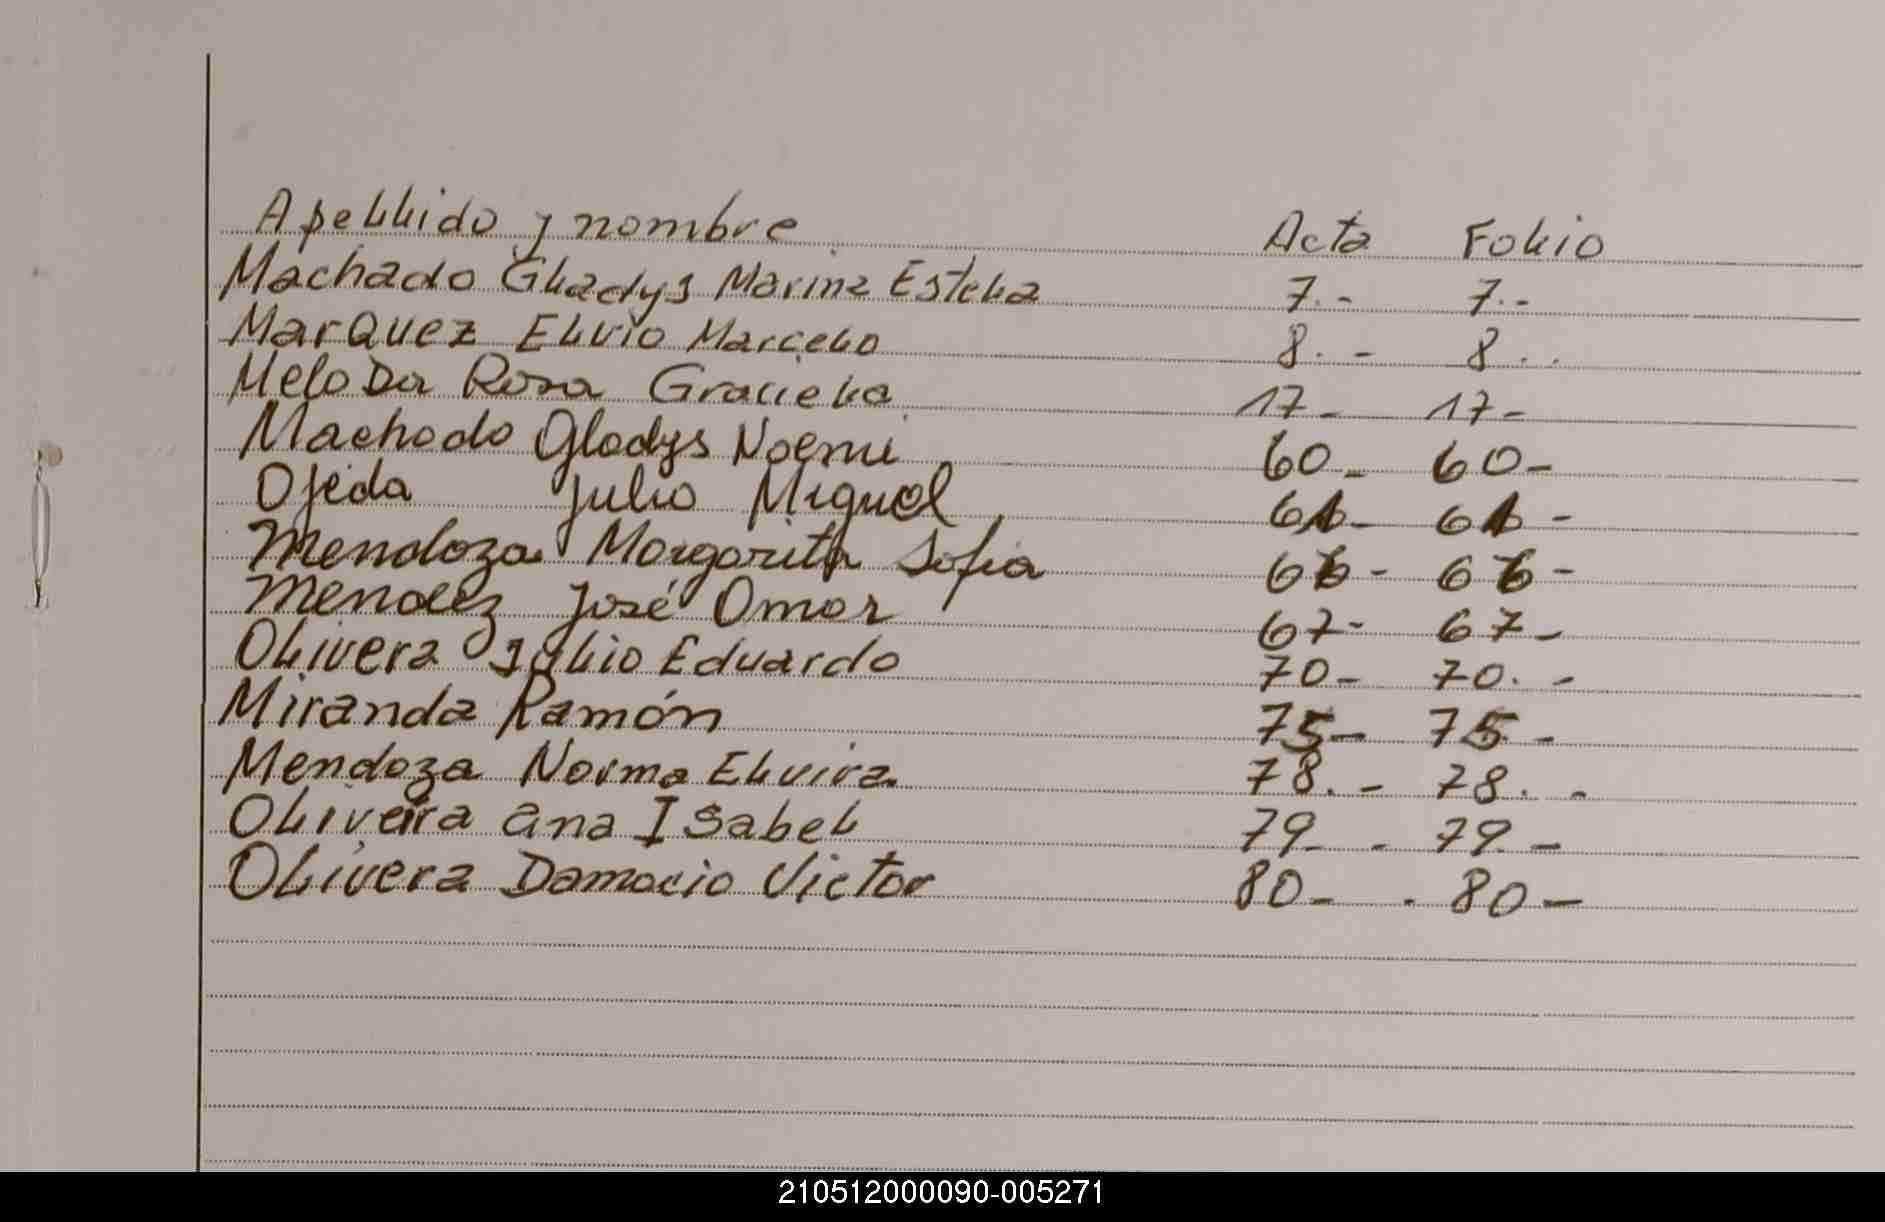 Apellido y nombre Acta Folio
Machado Gladys Marina Estela 7.- 7.-
Marquez Elvio Marcelo 8.- 8..
Melo Da Rosa Graciela 17- 17-
Machado Gladys Noemi 60- 60-
Ojeda Julio Miguel
Mendoza Margarita Sofia
Mendez José Omar 67- 67-
Olivera Julio Eduardo 70- 70.-
Miranda Ramón 75- 75-
Mendoza Norma Elvira 78.- 78.-
Oliveira Ana Isabel 79- - 79-
Olivera Damacio Victor 80- . 80-
210512000090-005271